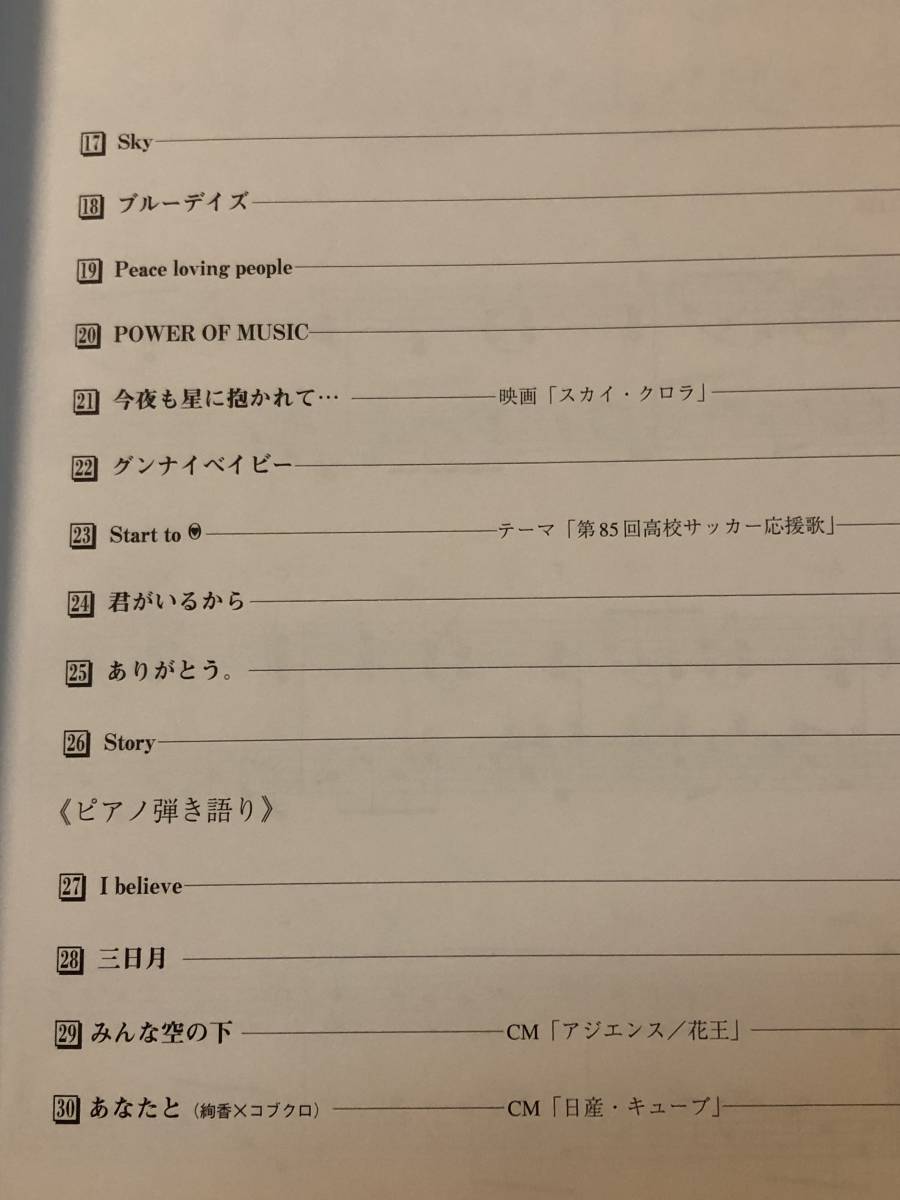 17 Sky
18 ブルーデイズ
19 Peace loving people
20 POWER OF MUSIC
21 今夜も星に抱かれて… 映画「スカイ・クロラ」
22 グンナイベイビー
23 Start to テーマ「第85回高校サッカー応援歌」
24 君がいるから
25 ありがとう。
26 Story
《ピアノ弾き語り》
27 I believe
28 三日月
29 みんな空の下 CM「アジエンス／花王」
30 あなたと（絢香×コブクロ） CM「日産・キューブ」